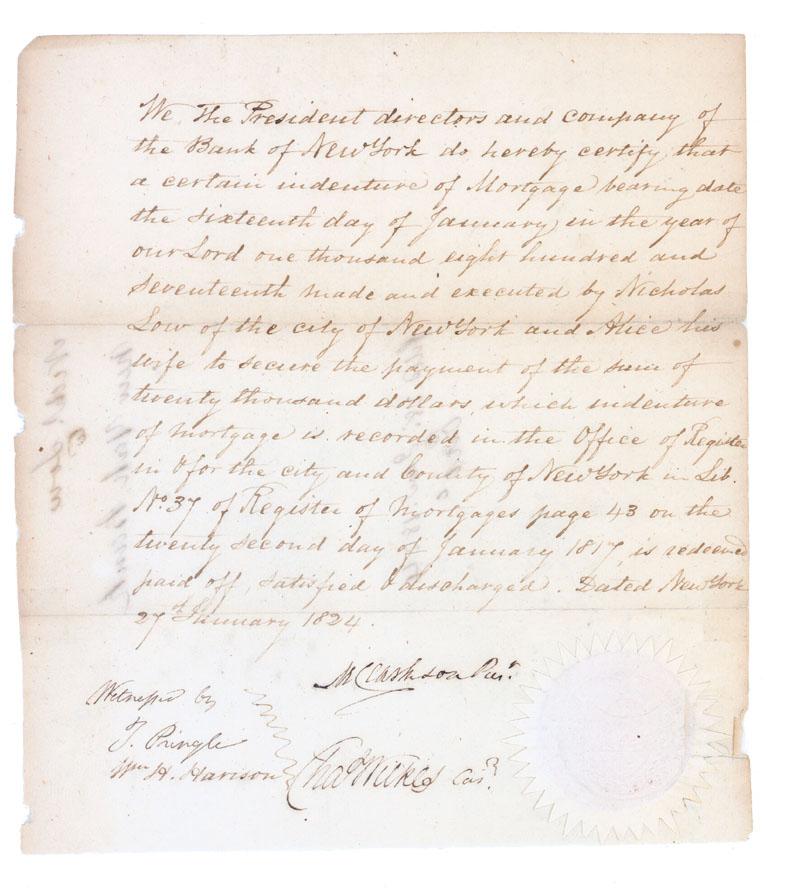 We, The President directors and company of
the Bank of New York do hereby certify that
a certain indenture of Mortgage bearing date
the sixteenth day of January in the year of
our Lord one thousand eight hundred and
seventeenth made and executed by Nicholas
Low of the city of New York and Alice his
wife to secure the payment of the sum of
twenty thousand dollars, which indenture
of mortgage is recorded in the Office of Register
in & for the city and County of New York in Lib.
No. 37 of Register of Mortgages page 43 on the
twenty second day of January 1817, is redeemed
paid off, satisfied & discharged. Dated New York
27th January 1824.
M Clarkson
Witnessed by
T. Pringle
Wm H. Harison
Chas Wilkes Casr.